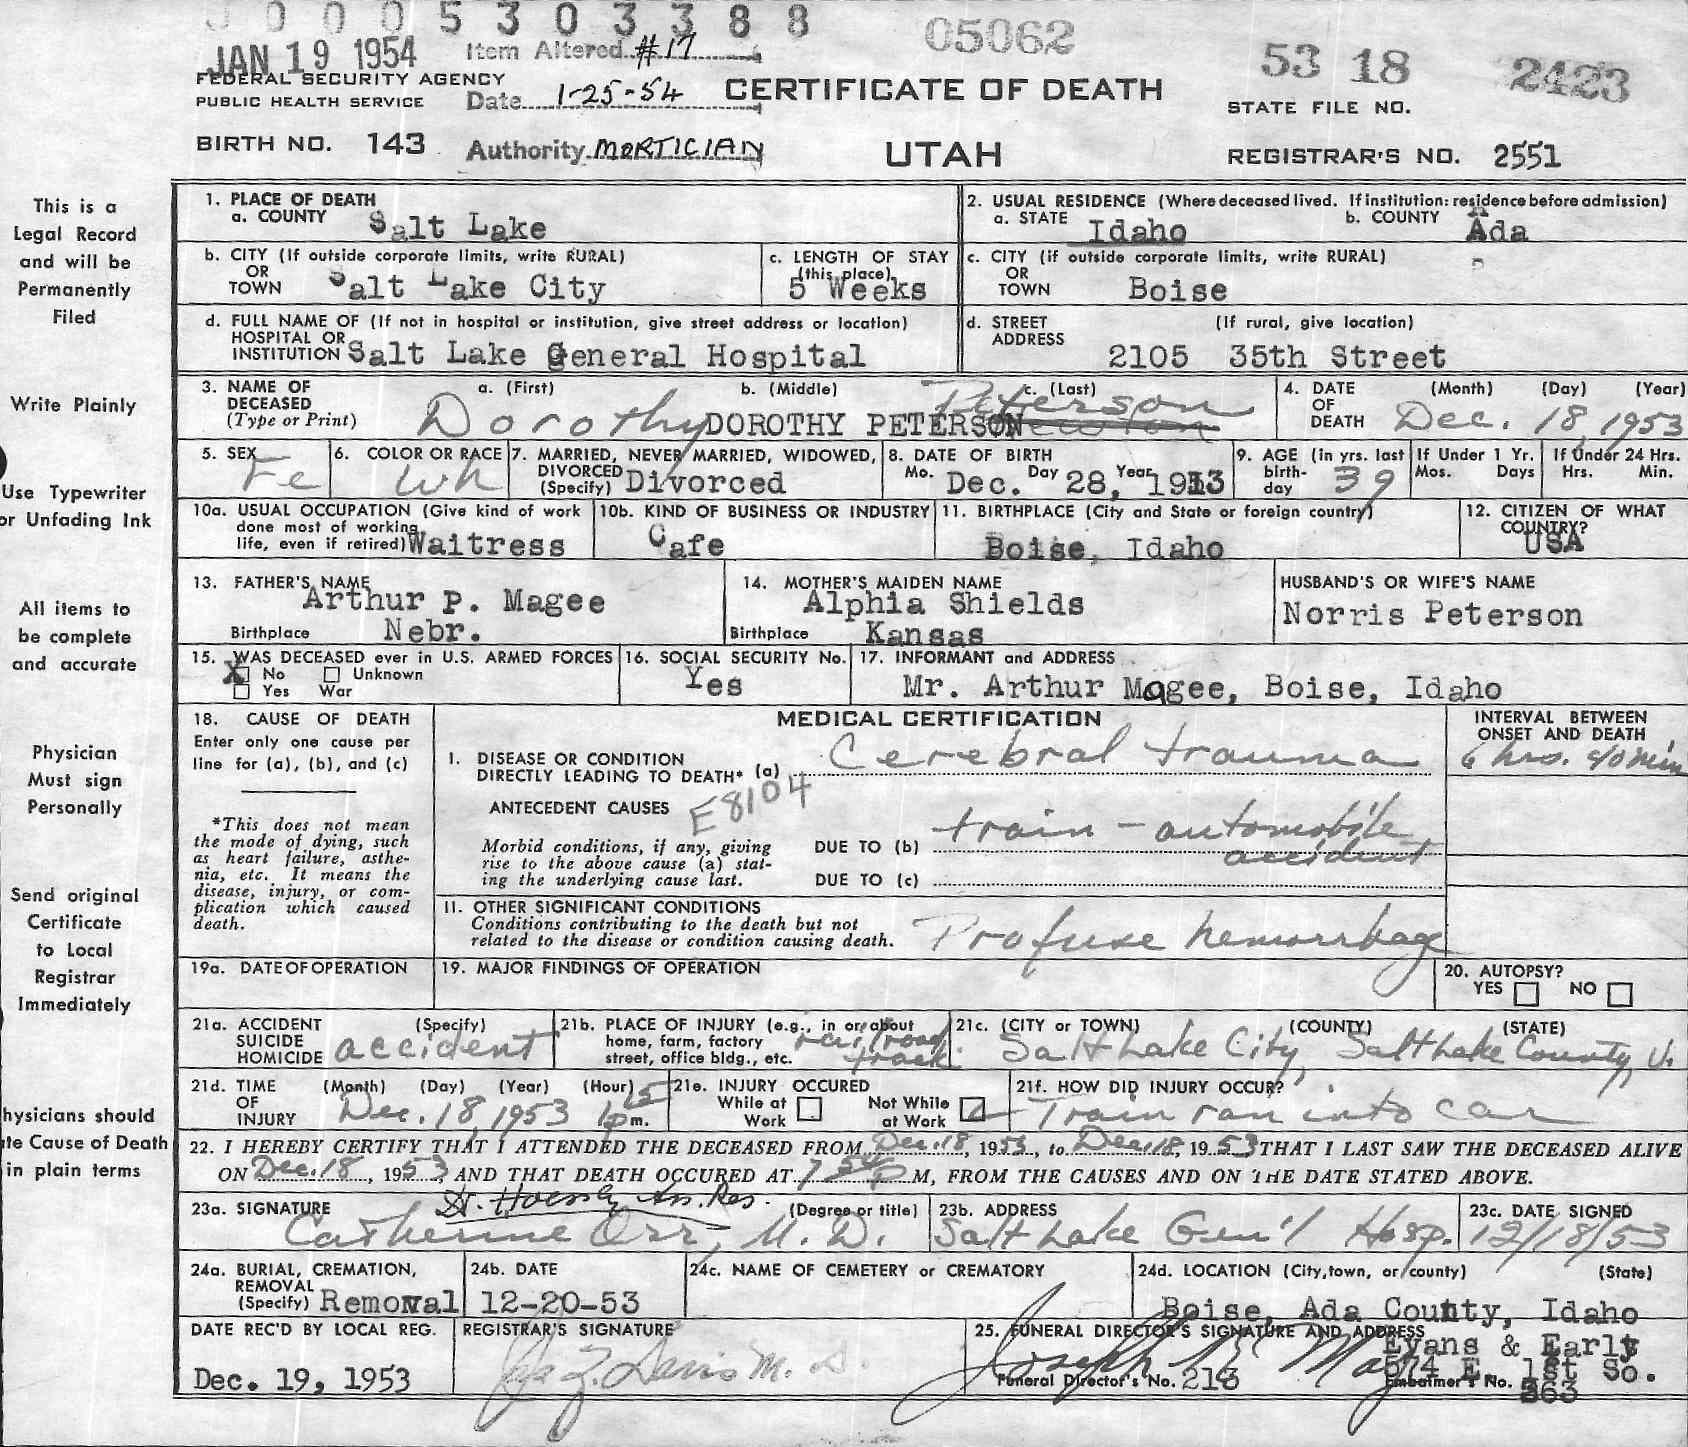 0 0 0 5 3 0 3 3 8 8
JAN 19 1954 Item Altered #17 05062 53 18 2423
FEDERAL SECURITY AGENCY
PUBLIC HEALTH SERVICE Date 1-25-54 CERTIFICATE OF DEATH STATE FILE NO.
BIRTH NO. 143 Authority MORTICIAN UTAH REGISTRAR'S NO. 2551
This is a Legal Record and will be Permanently Filed
Write Plainly
Use Typewriter or Unfading Ink
All items to be complete and accurate
Physician Must sign Personally
Send original Certificate to Local Registrar Immediately
hysicians should te Cause of Death in plain terms
1. PLACE OF DEATH
a. COUNTY Salt Lake
2. USUAL RESIDENCE (Where deceased lived. If institution: residence before admission)
a. STATE Idaho b. COUNTY Ada
b. CITY (If outside corporate limits, write RURAL)
OR
TOWN Salt Lake City
c. LENGTH OF STAY
(this place)
5 Weeks
c. CITY (if outside corporate limits, write RURAL)
OR
TOWN Boise
d. FULL NAME OF (If not in hospital or institution, give street address or location)
HOSPITAL OR
INSTITUTION Salt Lake General Hospital
d. STREET (If rural, give location)
ADDRESS 2105 35th Street
3. NAME OF a. (First) b. (Middle) c. (Last)
DECEASED
(Type or Print) Dorothy DOROTHY PETERSON Peterson
4. DATE (Month) (Day) (Year)
OF
DEATH Dec. 18, 1953
5. SEX Fe
6. COLOR OR RACE Wh
7. MARRIED, NEVER MARRIED, WIDOWED,
DIVORCED
(Specify) Divorced
8. DATE OF BIRTH
Mo. Dec. Day 28, Year 1913
9. AGE (in yrs. last
birth-
day 39
If Under 1 Yr.
Mos. Days
If Under 24 Hrs.
Hrs. Min.
10a. USUAL OCCUPATION (Give kind of work
done most of working
life, even if retired) Waitress
10b. KIND OF BUSINESS OR INDUSTRY
Cafe
11. BIRTHPLACE (City and State or foreign country)
Boise, Idaho
12. CITIZEN OF WHAT
COUNTRY?
USA
13. FATHER'S NAME
Arthur P. Magee
Birthplace Nebr.
14. MOTHER'S MAIDEN NAME
Alphia Shields
Birthplace Kansas
HUSBAND'S OR WIFE'S NAME
Norris Peterson
15. WAS DECEASED ever in U.S. ARMED FORCES
X No Unknown
Yes War
16. SOCIAL SECURITY No.
Yes
17. INFORMANT and ADDRESS
Mr. Arthur Magee, Boise, Idaho
18. CAUSE OF DEATH
Enter only one cause per
line for (a), (b), and (c)
*This does not mean
the mode of dying, such
as heart failure, asthe-
nia, etc. It means the
disease, injury, or com-
plication which caused
death.
MEDICAL CERTIFICATION
INTERVAL BETWEEN
ONSET AND DEATH
1. DISEASE OR CONDITION
DIRECTLY LEADING TO DEATH* (a) Cerebral trauma 6 hrs. 40 min
ANTECEDENT CAUSES E8104
Morbid conditions, if any, giving
rise to the above cause (a) stat-
ing the underlying cause last.
DUE TO (b) train - automobile
accident
DUE TO (c)
11. OTHER SIGNIFICANT CONDITIONS
Conditions contributing to the death but not
related to the disease or condition causing death.
Profuse hemorrhage
19a. DATE OF OPERATION
19. MAJOR FINDINGS OF OPERATION
20. AUTOPSY?
YES NO
21a. ACCIDENT (Specify)
SUICIDE
HOMICIDE accident
21b. PLACE OF INJURY (e.g., in or about
home, farm, factory
street, office bldg., etc. railroad
track
21c. (CITY or TOWN) (COUNTY) (STATE)
Salt Lake City, Salt Lake County, U.
21d. TIME (Month) (Day) (Year) (Hour)
OF
INJURY Dec. 18, 1953 1 15 pm.
21e. INJURY OCCURED
While at Work
Not While at Work
21f. HOW DID INJURY OCCUR?
Train ran into car
22. I HEREBY CERTIFY THAT I ATTENDED THE DECEASED FROM Dec. 18, 1953, to Dec. 18, 1953 THAT I LAST SAW THE DECEASED ALIVE
ON Dec. 18, 1953, AND THAT DEATH OCCURED AT 7 54 P M, FROM THE CAUSES AND ON THE DATE STATED ABOVE.
23a. SIGNATURE (Degree or title)
Catherine Orr, M.D.
23b. ADDRESS
Salt Lake Gen'l Hosp.
23c. DATE SIGNED
12/18/53
24a. BURIAL, CREMATION,
REMOVAL
(Specify) Removal
24b. DATE
12-20-53
24c. NAME OF CEMETERY or CREMATORY
24d. LOCATION (City, town, or county) (State)
Boise, Ada County, Idaho
DATE REC'D BY LOCAL REG.
Dec. 19, 1953
REGISTRAR'S SIGNATURE
Davis M.D.
25. FUNERAL DIRECTOR'S SIGNATURE AND ADDRESS
Joseph
Evans & Early
574 E. 1st So.
Funeral Director's No. 213 Embalmer's No. 363